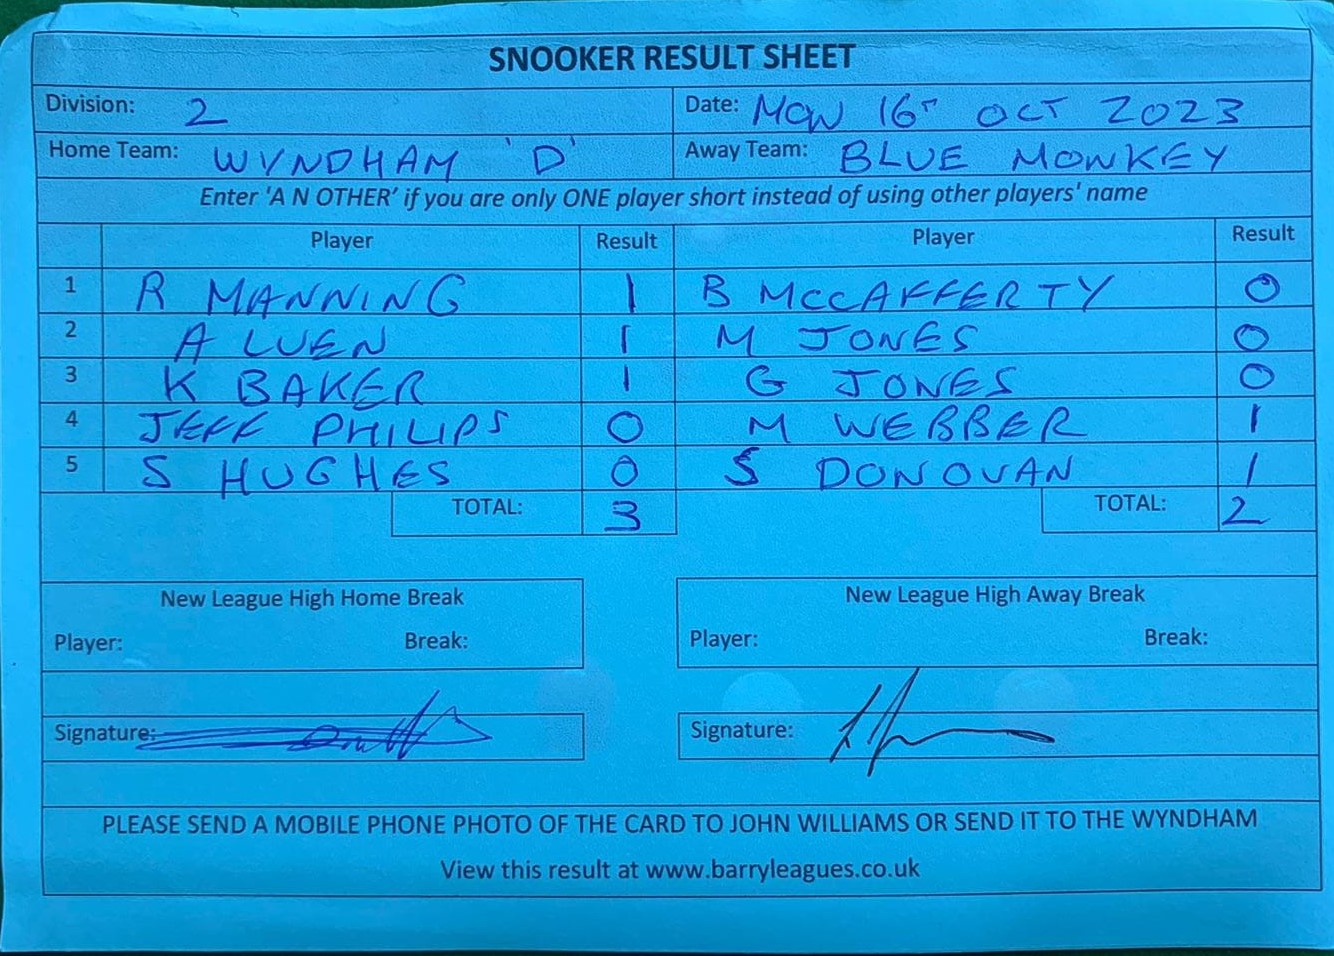 SNOOKER RESULT SHEET
Division: 2 Date: MON 16T OCT 2023
Home Team: WYNDHAM 'D' Away Team: BLUE MONKEY
Enter 'A N OTHER' if you are only ONE player short instead of using other players' name
Player Result Player Result
1 R MANNING 1 B MCCAFFERTY 0
2 A LUEN 1 M JONES 0
3 K BAKER 1 G JONES 0
4 JEFF PHILIPS 0 M WEBBER 1
5 S HUGHES 0 S DONOVAN 1
TOTAL: 3 TOTAL: 2
New League High Home Break New League High Away Break
Player: Break: Player: Break:
Signature: Signature:
PLEASE SEND A MOBILE PHONE PHOTO OF THE CARD TO JOHN WILLIAMS OR SEND IT TO THE WYNDHAM
View this result at www.barryleagues.co.uk